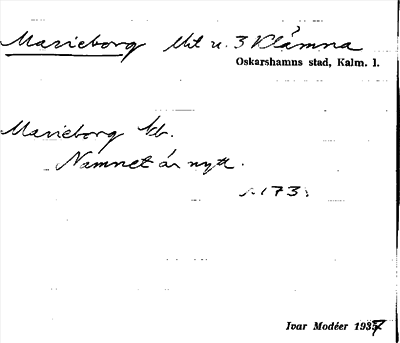 Marieborg lht u. 3 Klämna
Oskarshamns stad, Kalm. l.
Marieborg kb.
Namnet är nytt.
173
Ivar Modéer 1937